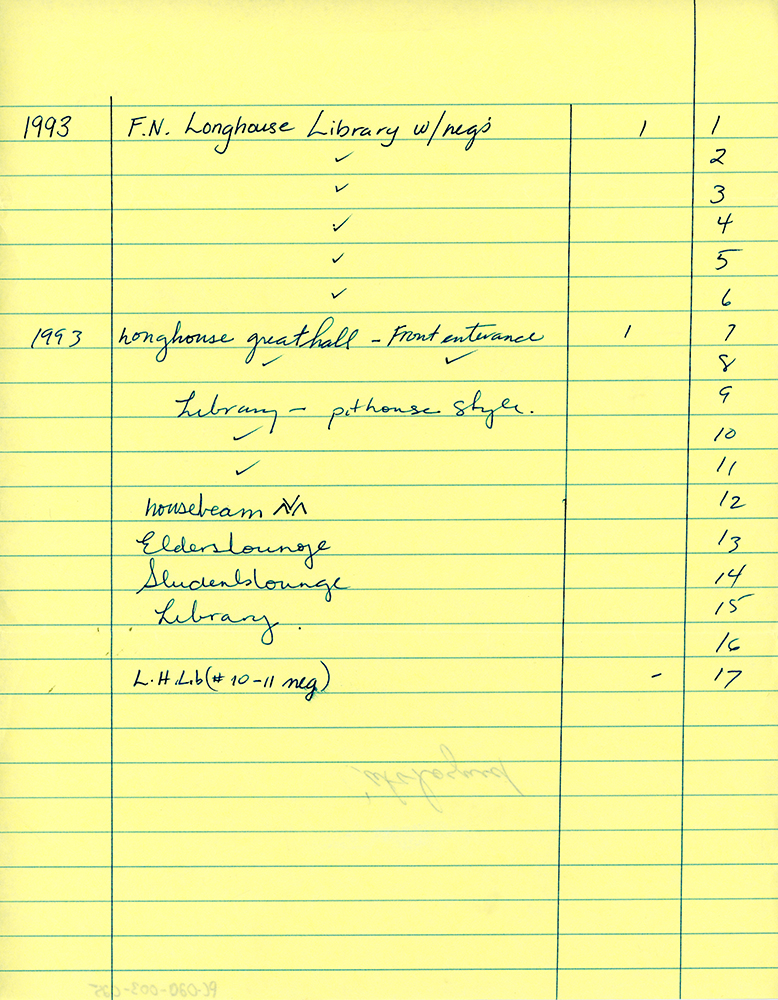 1993 F.N. Longhouse Library w/negs 1 1
✓ 2
✓ 3
✓ 4
✓ 5
✓ 6
1993 Longhouse great hall - Front enterance 1 7
✓ ✓ 8
Library - pithouse style. 9
✓ 10
✓ 11
housebeam 12
Elders lounge 13
Students lounge 14
Library. 15
16
L.H. Lib (# 10-11 neg) - 17